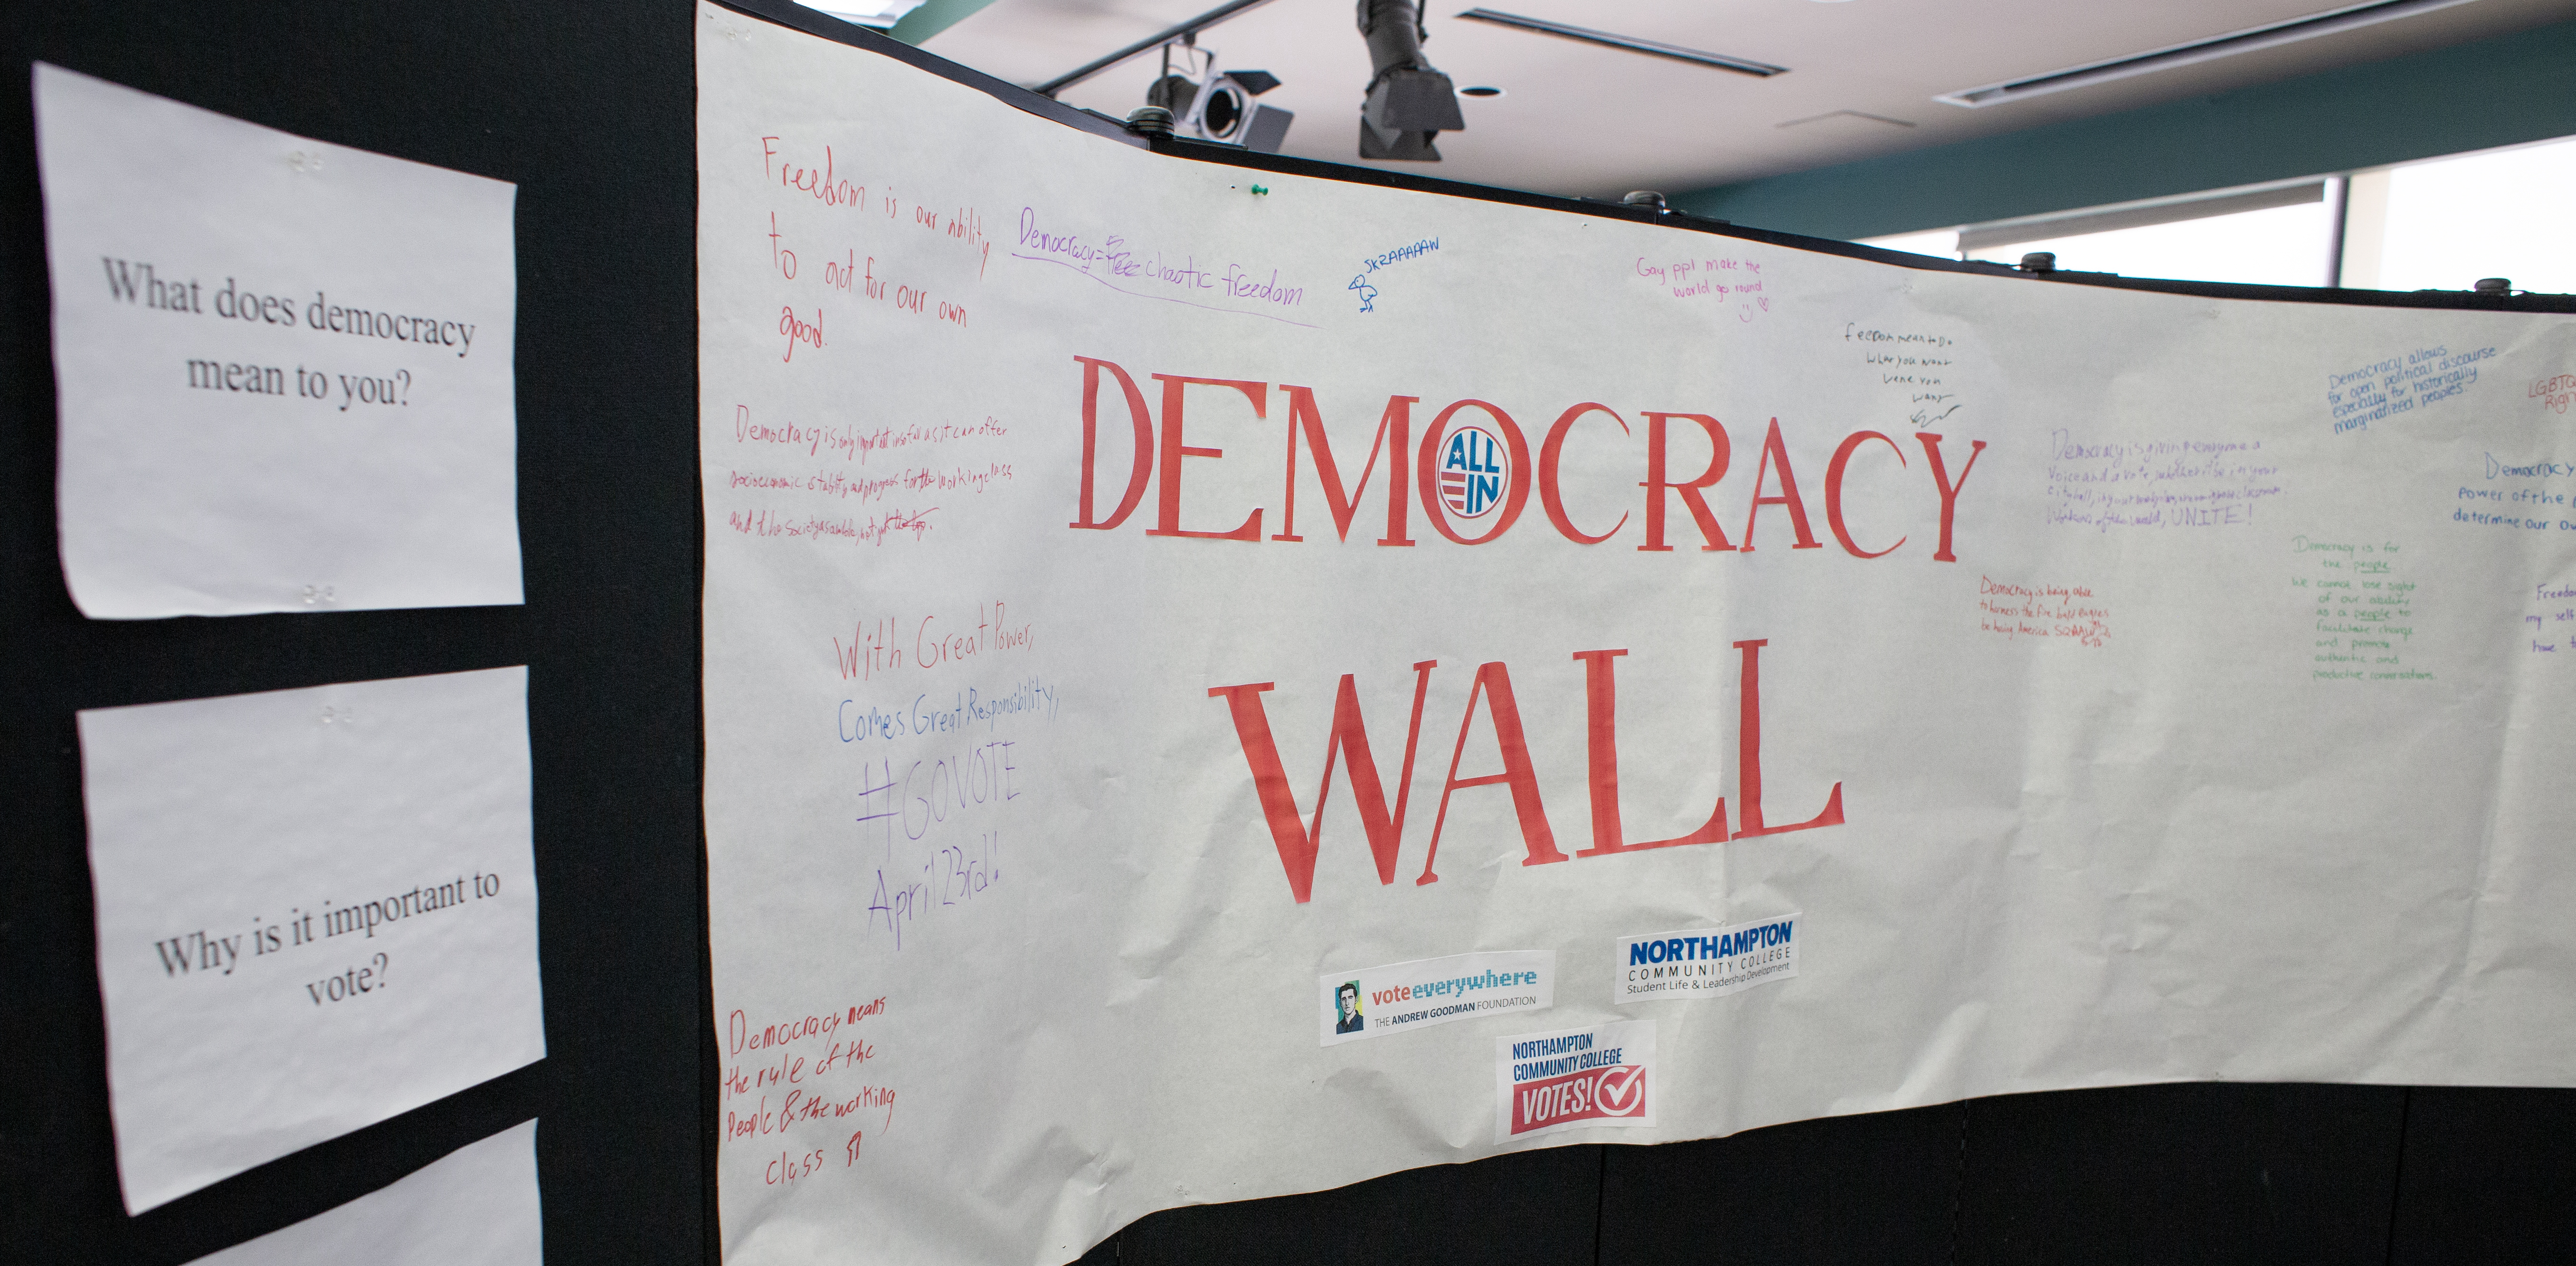 What does democracy
mean to you?
Why is it important to
vote?
Freedom is our ability
to act for our own
good.
Democracy = chaotic freedom
SKRAAAAAW
Gay ppl make the
world go round
freedom mean to Do
what you want
want
Democracy is only important insofar as it can offer
socioeconomic stability and progress for the working class
and the society as a whole, but not
DEMOCRACY
ALL
IN
WALL
With Great Power,
Comes Great Responsibility,
#GOVOTE
April 23rd!
Democracy means
the rule of the
People & the working
class
voteeverywhere
THE ANDREW GOODMAN FOUNDATION
NORTHAMPTON
COMMUNITY COLLEGE
Student Life & Leadership Development
NORTHAMPTON
COMMUNITY COLLEGE
VOTES!
Democracy is being able
to harness the five bald eagles
America
Democracy is giving everyone a
voice and a vote, whether it be in your
city hall,
Workers of the world, UNITE!
Democracy allows
for open political discourse
especially for historically
marginalized peoples.
LGBTQ
Democracy is for
the people.
We cannot lose sight
of our ability
as a people to
facilitate change
and promote
authentic and
productive conversations.
Democracy
Power of the
determine our
my self
have